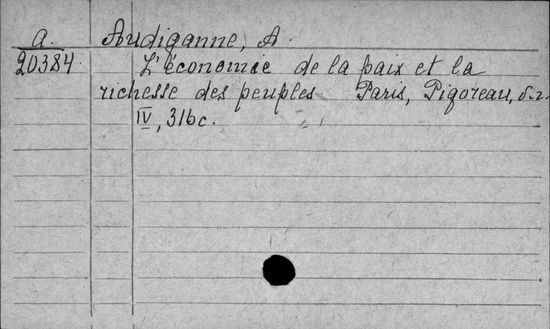 a. Audiganne, A.
20384. L'économie de la paix et la
richesse des peuples Paris, Pigoreau, s.a.
IV, 316c.